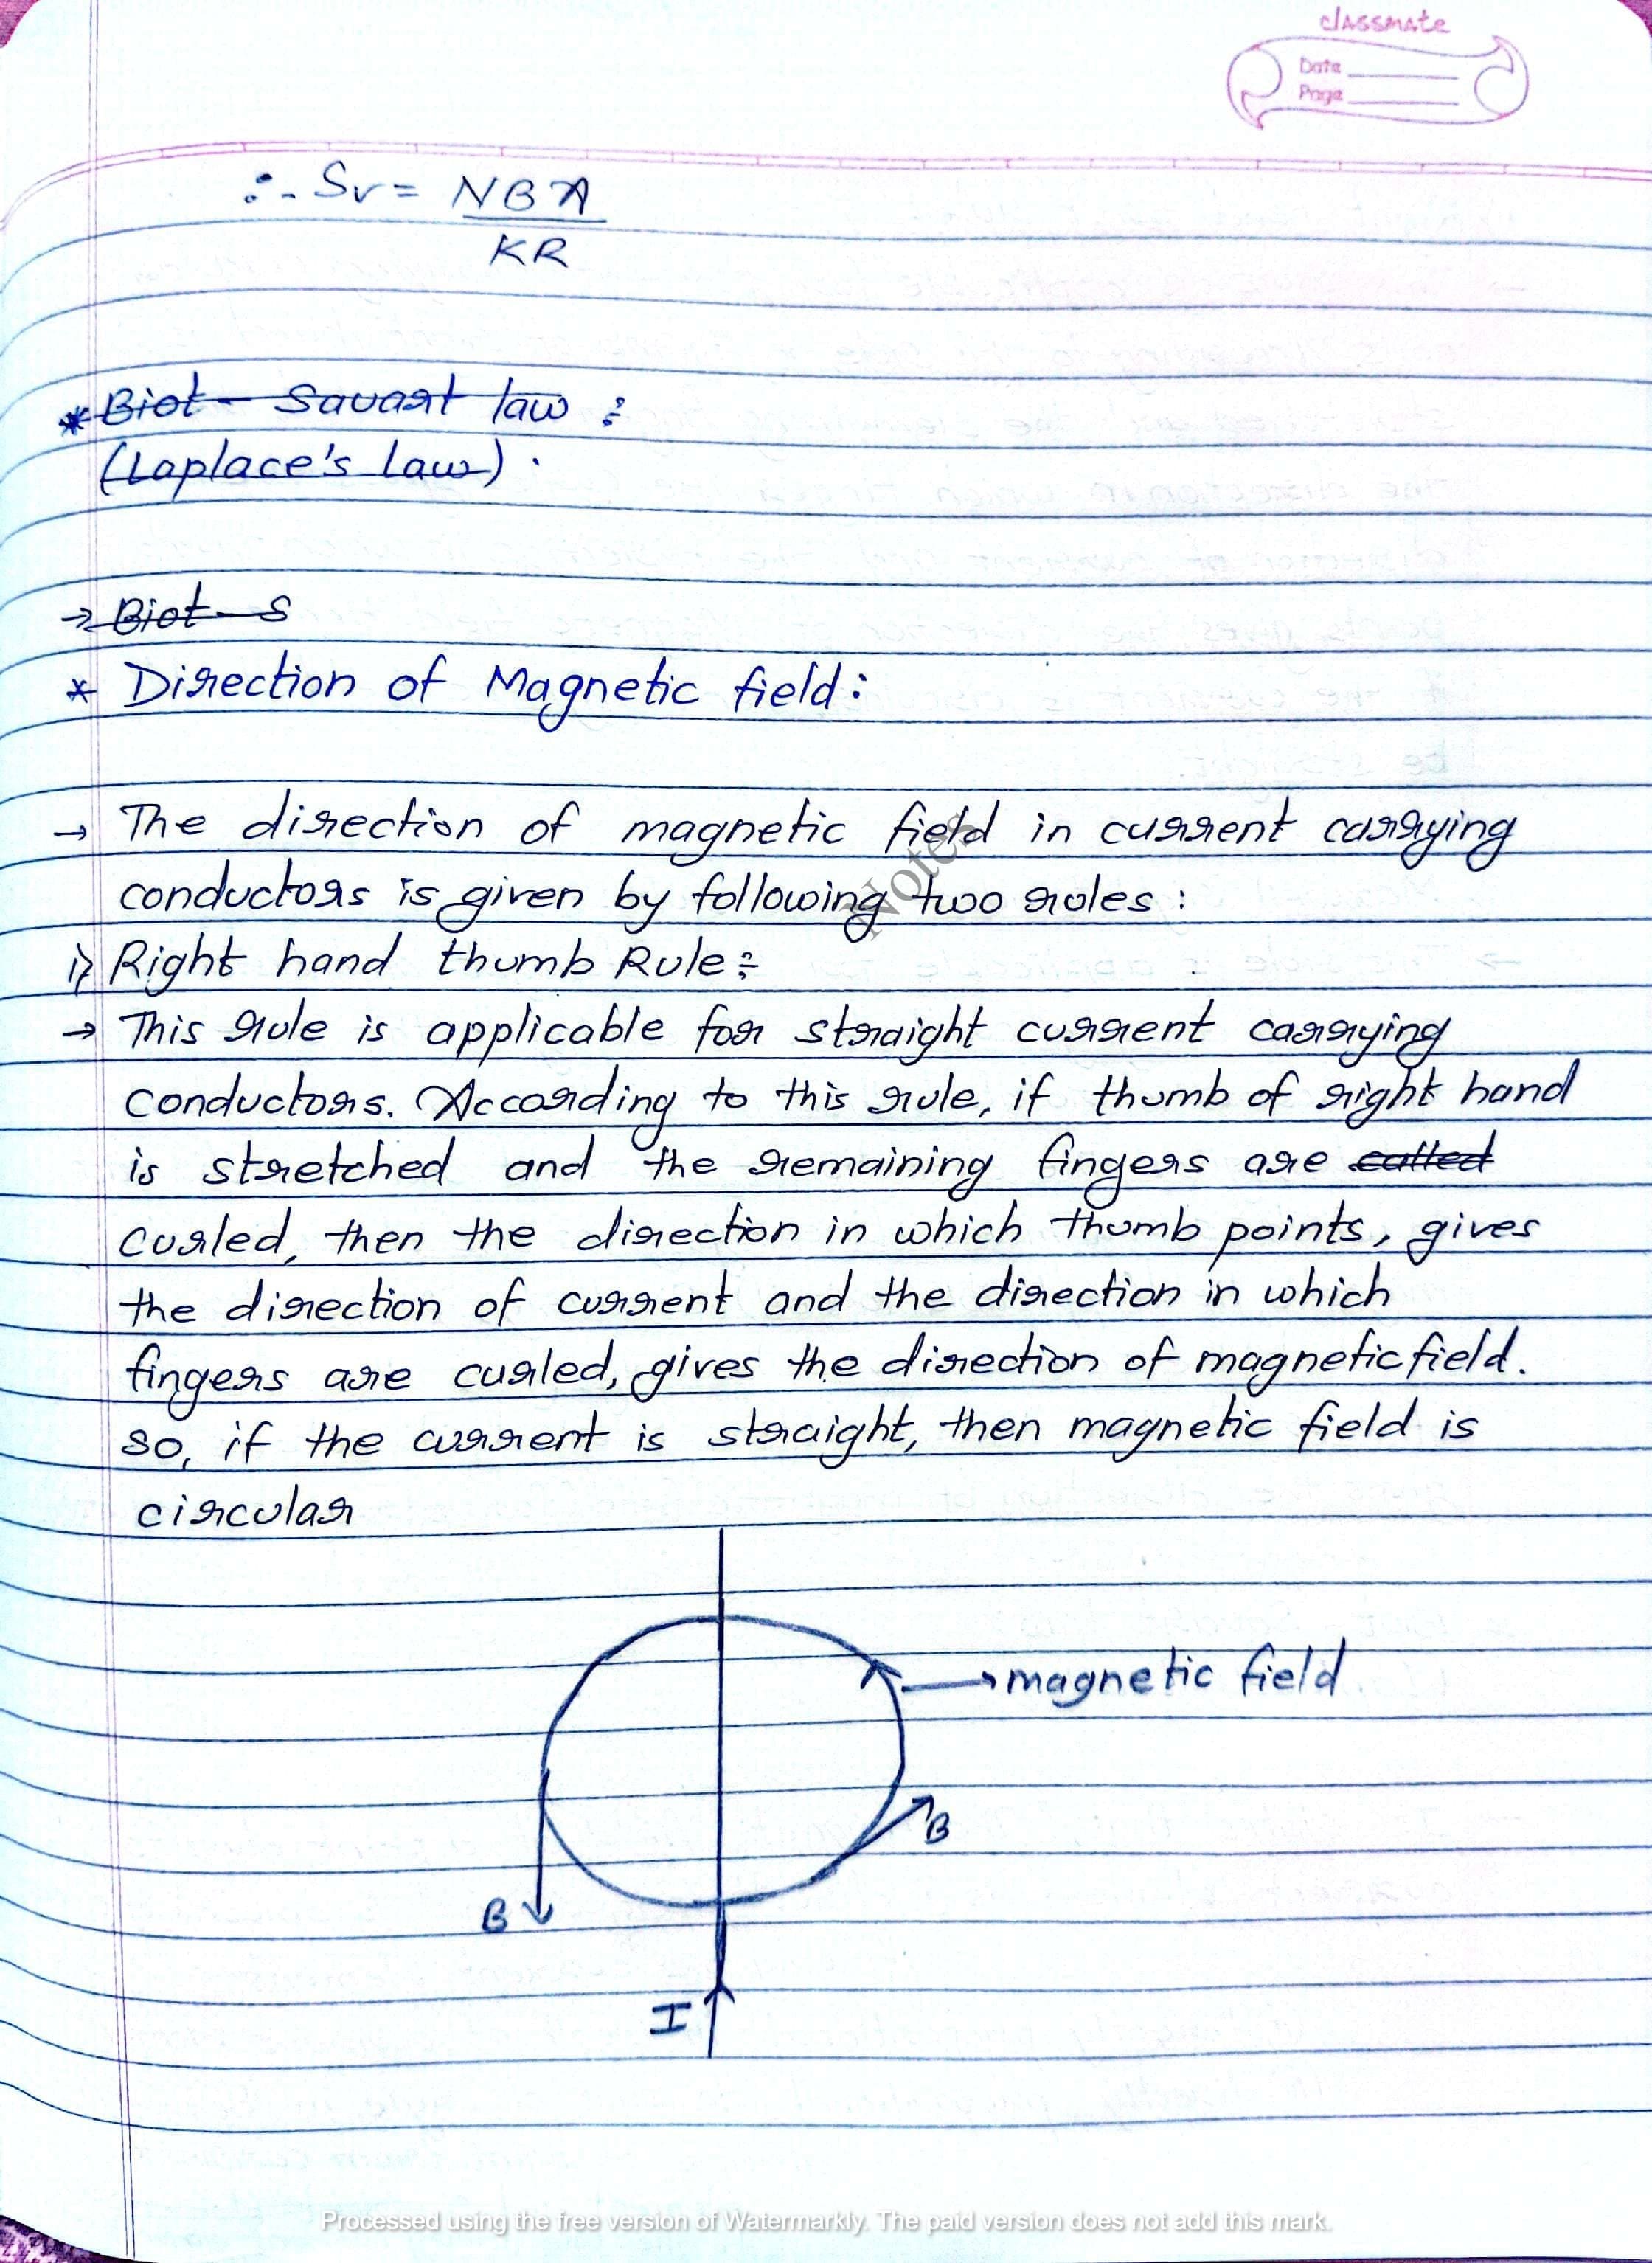 classmate
Date
Page
∴ Sv = NBA
KR
* Biot - Savart law :
(Laplace's law).
→ Biot - S
* Direction of Magnetic field:
→ The direction of magnetic field in current carrying
conductors is given by following two rules :
i) Right hand thumb Rule :
→ This rule is applicable for straight current carrying
conductors. According to this rule, if thumb of right hand
is stretched and the remaining fingers are called
curled, then the direction in which thumb points, gives
the direction of current and the direction in which
fingers are curled, gives the direction of magnetic field.
so, if the current is straight, then magnetic field is
circular
→ magnetic field
B
B
I
Notes
Processed using the free version of Watermarkly. The paid version does not add this mark.